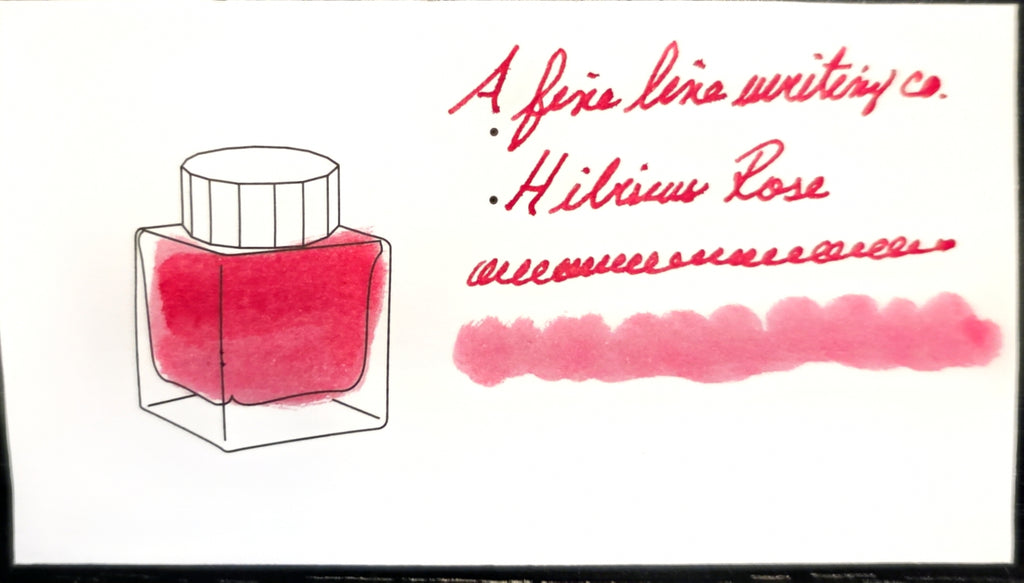 A fine line writing co.
Hibiscus Rose